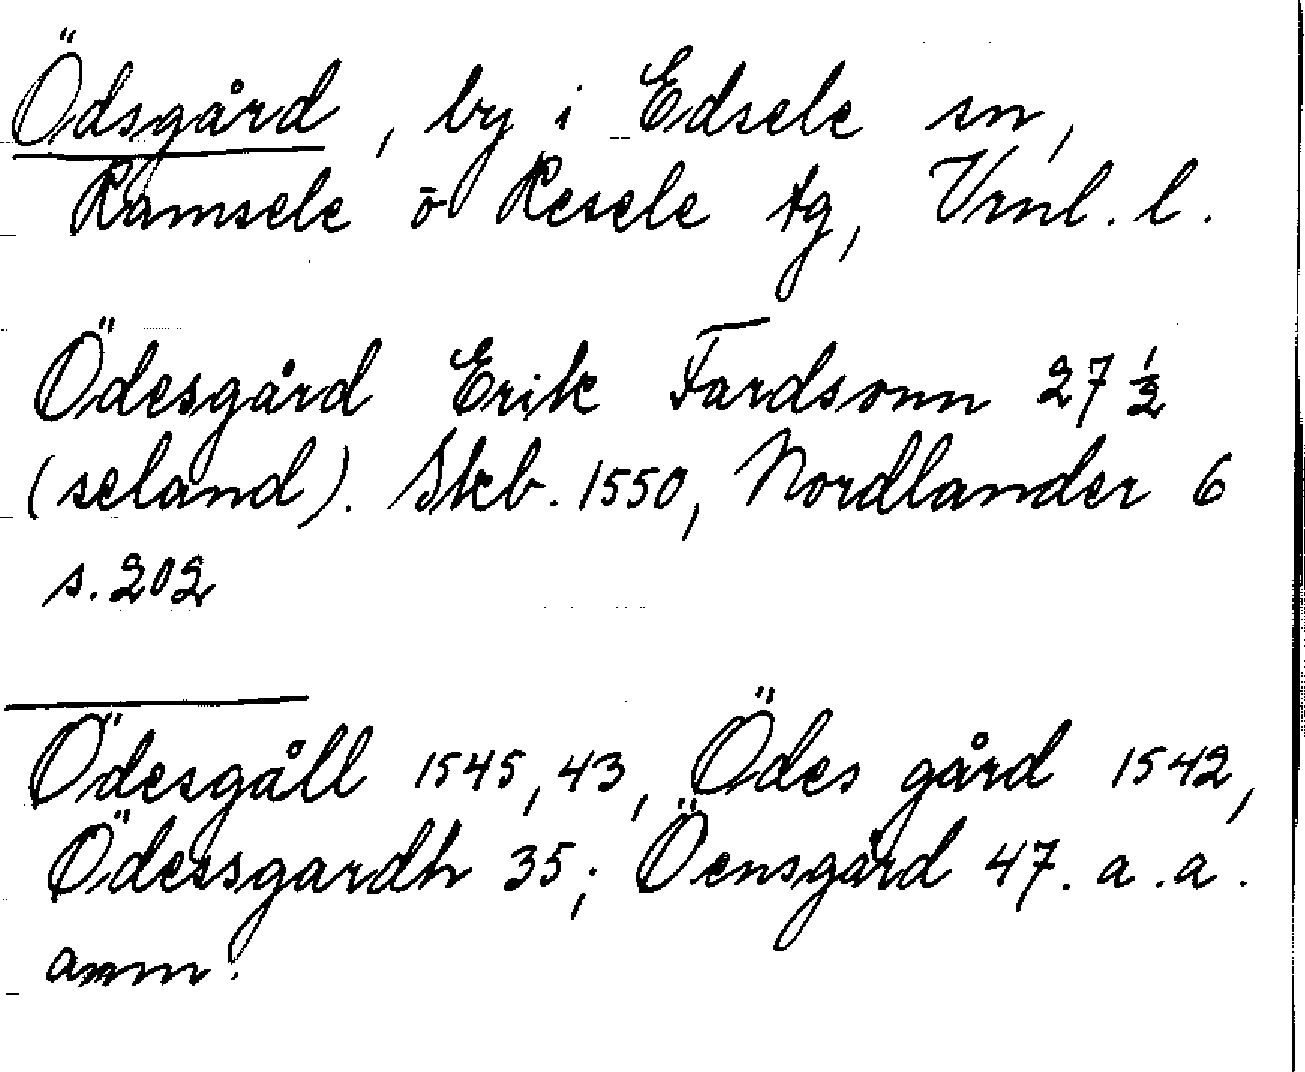 Ödsgård, by i Edsele sn,
Ramsele o Resele tg, Vrnl. l.
Ödesgård Erik Fardsonn 27 1/2
(seland). Skb. 1550, Nordlander 6
s. 202
Ödesgåll 1545, 43, Ödes gård 1542,
Ödessgardh 35; Öensgård 47. a. a.
anm.